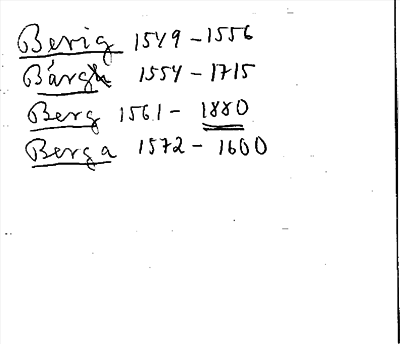 Berig 1549-1556
Bårg 1554-1715
Berg 1561-1880
Berga 1572-1600